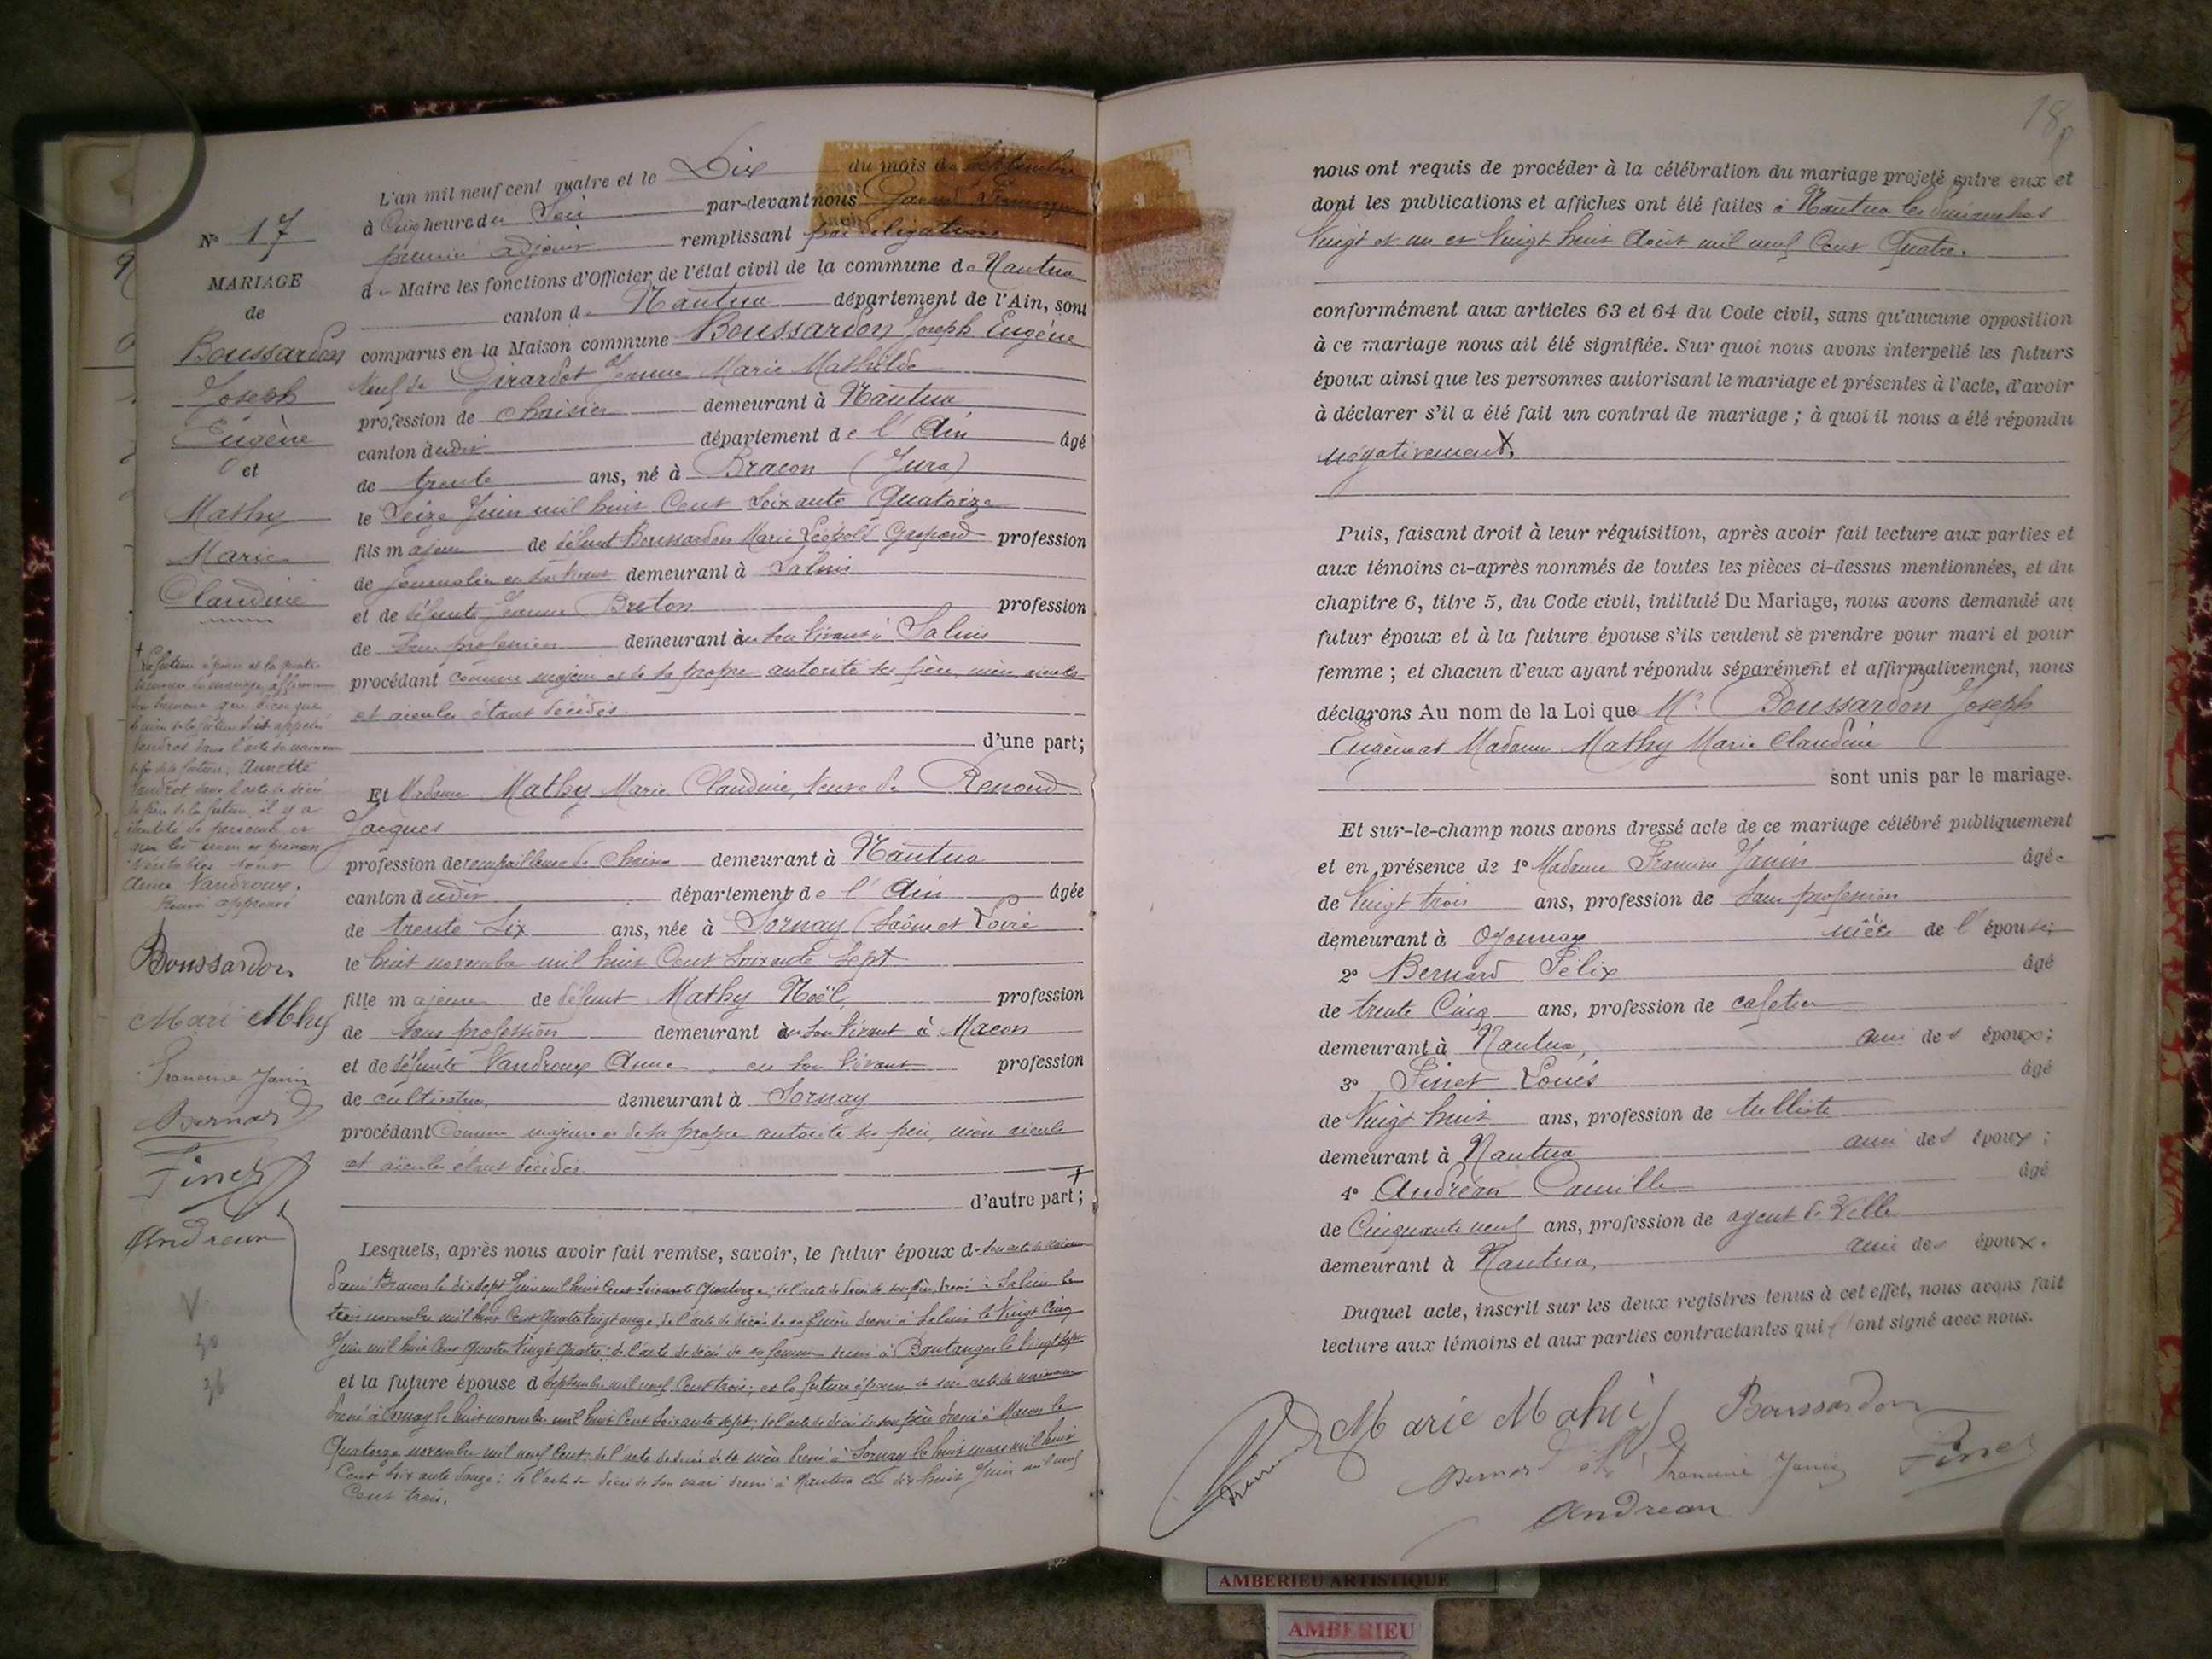 18
L'an mil neuf cent quatre et le Dix du mois de Septembre
à Cinq heure du Soir par-devant nous
premier adjoint remplissant par délégation
de Maire les fonctions d'Officier de l'état civil de la commune de Nantua
canton de Nantua département de l'Ain, sont
comparus en la Maison commune Boussardon Joseph Eugène
veuf de Girardot Jeanne Marie Mathilde
profession de chaisier demeurant à Nantua
canton dudit département de l'Ain âgé
de trente ans, né à Bracon (Jura)
le Seize Juin mil huit Cent Soixante Quatorze
fils majeur de défunt Boussardon Marie Léopold Gaspard profession
de Journalier en son vivant demeurant à Salins
et de défunte Jeanne Breton profession
de Sans profession demeurant en son vivant à Salins
procédant comme majeur et de sa propre autorité ses père, mère, aieuls
et aieules étant décédés.
d'une part;
Et Madame Mathy Marie Claudine, veuve de Renoud
Jacques
profession de rempailleuse de chaises demeurant à Nantua
canton dudit département de l'Ain âgée
de trente Six ans, née à Sornay (Saône et Loire
le huit novembre mil huit Cent Soixante Sept
fille majeure de défunt Mathy Noël profession
de Sans profession demeurant en son vivant à Macon
et de défunte Vandroux Anne en son vivant profession
de cultivatrice demeurant à Sornay
procédant Comme majeure et de sa propre autorité ses père, mère aieuls
et aieules étant décédés
d'autre part; +
Lesquels, après nous avoir fait remise, savoir, le futur époux de son acte de naissance
dressé Bracon le dix sept Juin mil huit Cent Soixante Quatorze; de l'acte de décès de son père dressé à Salins le
trois novembre mil huit Cent Quatre Vingt onze, de l'acte de décès de sa mère dressé à Salins le Vingt Cinq
Juin mil huit Cent Quatre Vingt Quatre; de l'acte de décès de sa femme dressé à le Vingt sept
et la future épouse d Septembre mil neuf Cent trois; et la future épouse de son acte de naissance
dressé à Sornay le huit novembre mil huit Cent Soixante sept; de l'acte de décès de son père dressé à Macon le
Quatorze novembre mil neuf Cent; de l'acte de décès de la mère dressé à Sornay le huit mars mil huit
Cent Soixante douze; de l'acte de décès de son mari dressé à Nantua le dix huit Juin mil neuf
Cent trois.
N° 17
MARIAGE
de
Boussardon
Joseph
Eugène
et
Mathy
Marie
Claudine
+ La future épouse et les quatre
témoins du mariage affirment
que bien que
la mère de la future soit appelée
Vandrot dans l'acte de naissance
de la future, Annette
Vandrot dans l'acte de décès
du père de la future, il y a
identité de personne et
que les noms et prénoms
véritables sont
Anne Vandroux.
Renvoi approuvé
Boussardon
Mari Mthy
Francine Janin
Bernard
Finet
Andrean
V.
30
36
nous ont requis de procéder à la célébration du mariage projeté entre eux et
dont les publications et affiches ont été faites à Nantua les Dimanches
Vingt et un et Vingt huit Août mil neuf Cent Quatre.
conformément aux articles 63 et 64 du Code civil, sans qu'aucune opposition
à ce mariage nous ait été signifiée. Sur quoi nous avons interpellé les futurs
époux ainsi que les personnes autorisant le mariage et présentes à l'acte, d'avoir
à déclarer s'il a été fait un contrat de mariage ; à quoi il nous a été répondu
négativement.
Puis, faisant droit à leur réquisition, après avoir fait lecture aux parties et
aux témoins ci-après nommés de toutes les pièces ci-dessus mentionnées, et du
chapitre 6, titre 5, du Code civil, intitulé Du Mariage, nous avons demandé au
futur époux et à la future épouse s'ils veulent se prendre pour mari et pour
femme ; et chacun d'eux ayant répondu séparément et affirmativement, nous
déclarons Au nom de la Loi que Mr Boussardon Joseph
Eugène et Madame Mathy Marie Claudine
sont unis par le mariage.
Et sur-le-champ nous avons dressé acte de ce mariage célébré publiquement
et en présence de 1° Madame Francine Janin âgée
de Vingt trois ans, profession de Sans profession
demeurant à Oyonnax nièce de l'épouse;
2° Bernard Félix âgé
de trente Cinq ans, profession de cafetier
demeurant à Nantua, ami des époux;
3° Finet Louis âgé
de Vingt huit ans, profession de tulliste
demeurant à Nantua ami des époux ;
4° Andréan Camille âgé
de Cinquante neuf ans, profession de agent de Ville
demeurant à Nantua, ami des époux.
Duquel acte, inscrit sur les deux registres tenus à cet effet, nous avons fait
lecture aux témoins et aux parties contractantes qui ont signé avec nous.
Marie Mahi Boussardon
Bernard Francine Janin Finet
Andrean
AMBERIEU ARTISTIQUE
AMBERIEU